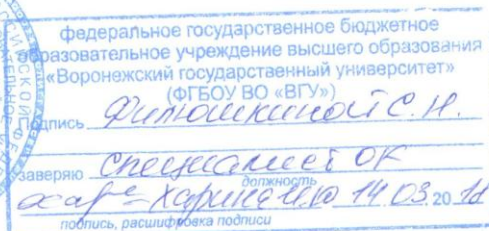 федеральное государственное бюджетное
образовательное учреждение высшего образования
«Воронежский государственный университет»
(ФГБОУ ВО «ВГУ»)
подпись Филюшкиной С. Н.
заверяю специалист ОК
должность
14.03.2018
подпись, расшифровка подписи